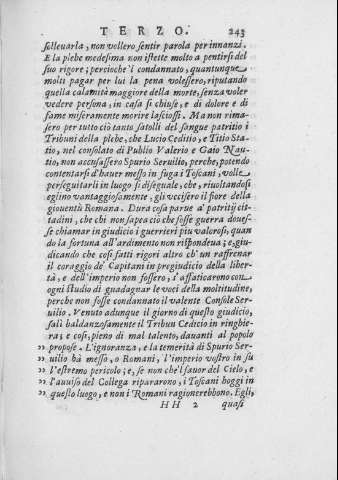 TERZO. 243
solleuarla, non vollero sentir parola per innanzi.
E la plebe medesima non istette molto a pentirsi del
suo rigore; percioche'l condannato, quantunque
molti pagar per lui la pena volessero, riputando
quella calamità maggiore della morte, senza voler
vedere persona, in casa si chiuse, e di dolore e di
fame miseramente morire lasciossi. Ma non rima-
sero per tutto ciò tanto satolli del sangue patritio i
Tribuni della plebe, che Lucio Ceditio, e Titio Sta-
tio, nel consolato di Publio Valerio e Gaio Nau-
tio, non accusassero Spurio Seruilio, perche, potendo
contentarsi d'hauer messo in fuga i Toscani, volle
perseguitarli in luogo sì diseguale, che, riuoltandosi
eglino vantaggiosamente, gli vccisero il fiore della
giouentù Romana. Dura cosa parue a' patritij cit-
tadini, che chi non sapea ciò che fosse guerra doues-
se chiamar in giudicio i guerrieri piu valorosi, quan
do la fortuna all'ardimento non rispondeua; e, giu-
dicando che così fatti rigori altro ch'un raffrenar
il coraggio de' Capitani in pregiudicio della liber-
tà, e dell'imperio non fossero, s'affaticarono con
ogni studio di guadagnar le voci della moltitudine,
perche non fosse condannato il valente Console Ser-
uilio. Venuto adunque il giorno di questo giudicio,
salì baldanzosamente il Tribun Cedicio in ringhie-
ra; e così, pieno di mal talento, dauanti al popolo
„ propose. L'ignoranza, e la temerità di Spurio Ser-
„ uilio hà messo, o Romani, l'imperio vostro in sù
„ l'estremo pericolo; e, se non che'l fauor del Cielo, e
„ l'auuiso del Collega ripararono, i Toscani hoggi in
„ questo luogo, e non i Romani ragionerebbono. Egli,
HH 2 quasi